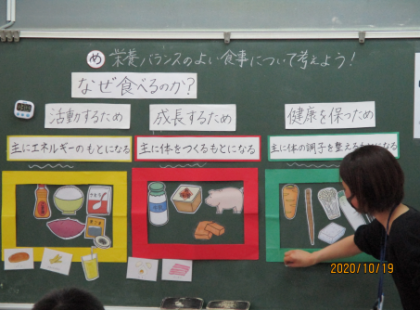 め 栄養バランスのよい食事について考えよう!
なぜ食べるのか?
活動するため
成長するため
健康を保つため
主にエネルギーのもとになる
主に体をつくるもとになる
主に体の調子を整えるもとになる
2020/10/19